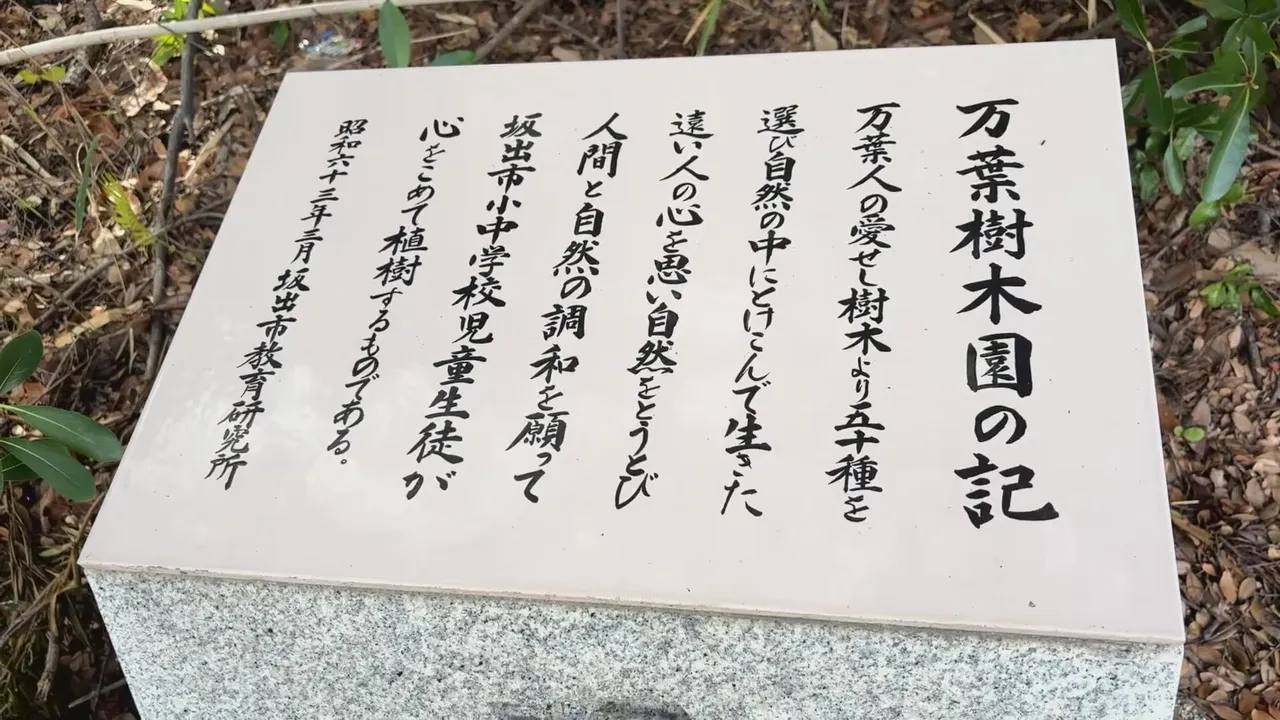 万葉樹木園の記
万葉人の愛せし樹木より五十種を
選び自然の中にとけこんで生きた
遠い人の心を思い自然をとうとび
人間と自然の調和を願って
坂出市小中学校児童生徒が
心をこめて植樹するものである。
昭和六十三年三月 坂出市教育研究所